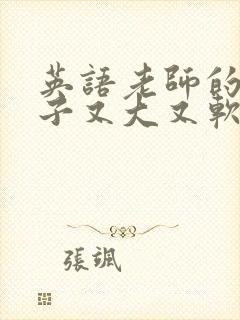 英語老師的
子又大又軟
張颯